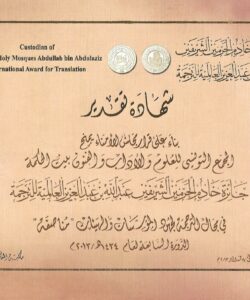 Custodian of
Holy Mosques Abdullah bin Abdolaziz
ternational Award for Translation
جائزة خادم الحرمين الشريفين
عبد الله بن عبد العزيز العالمية للترجمة
شهادة تقدير
بناءً على قرار مجلس الأمناء بمنح
المجمع التونسي للعلوم والآداب والفنون بيت الحكمة
جائزة خادم الحرمين الشريفين عبد الله بن عبد العزيز العالمية للترجمة
في مجال الترجمة لجهود المؤسسات والهيئات "مناصفة"
الدورة السابعة لعام ١٤٣٤هـ/٢٠١٣م